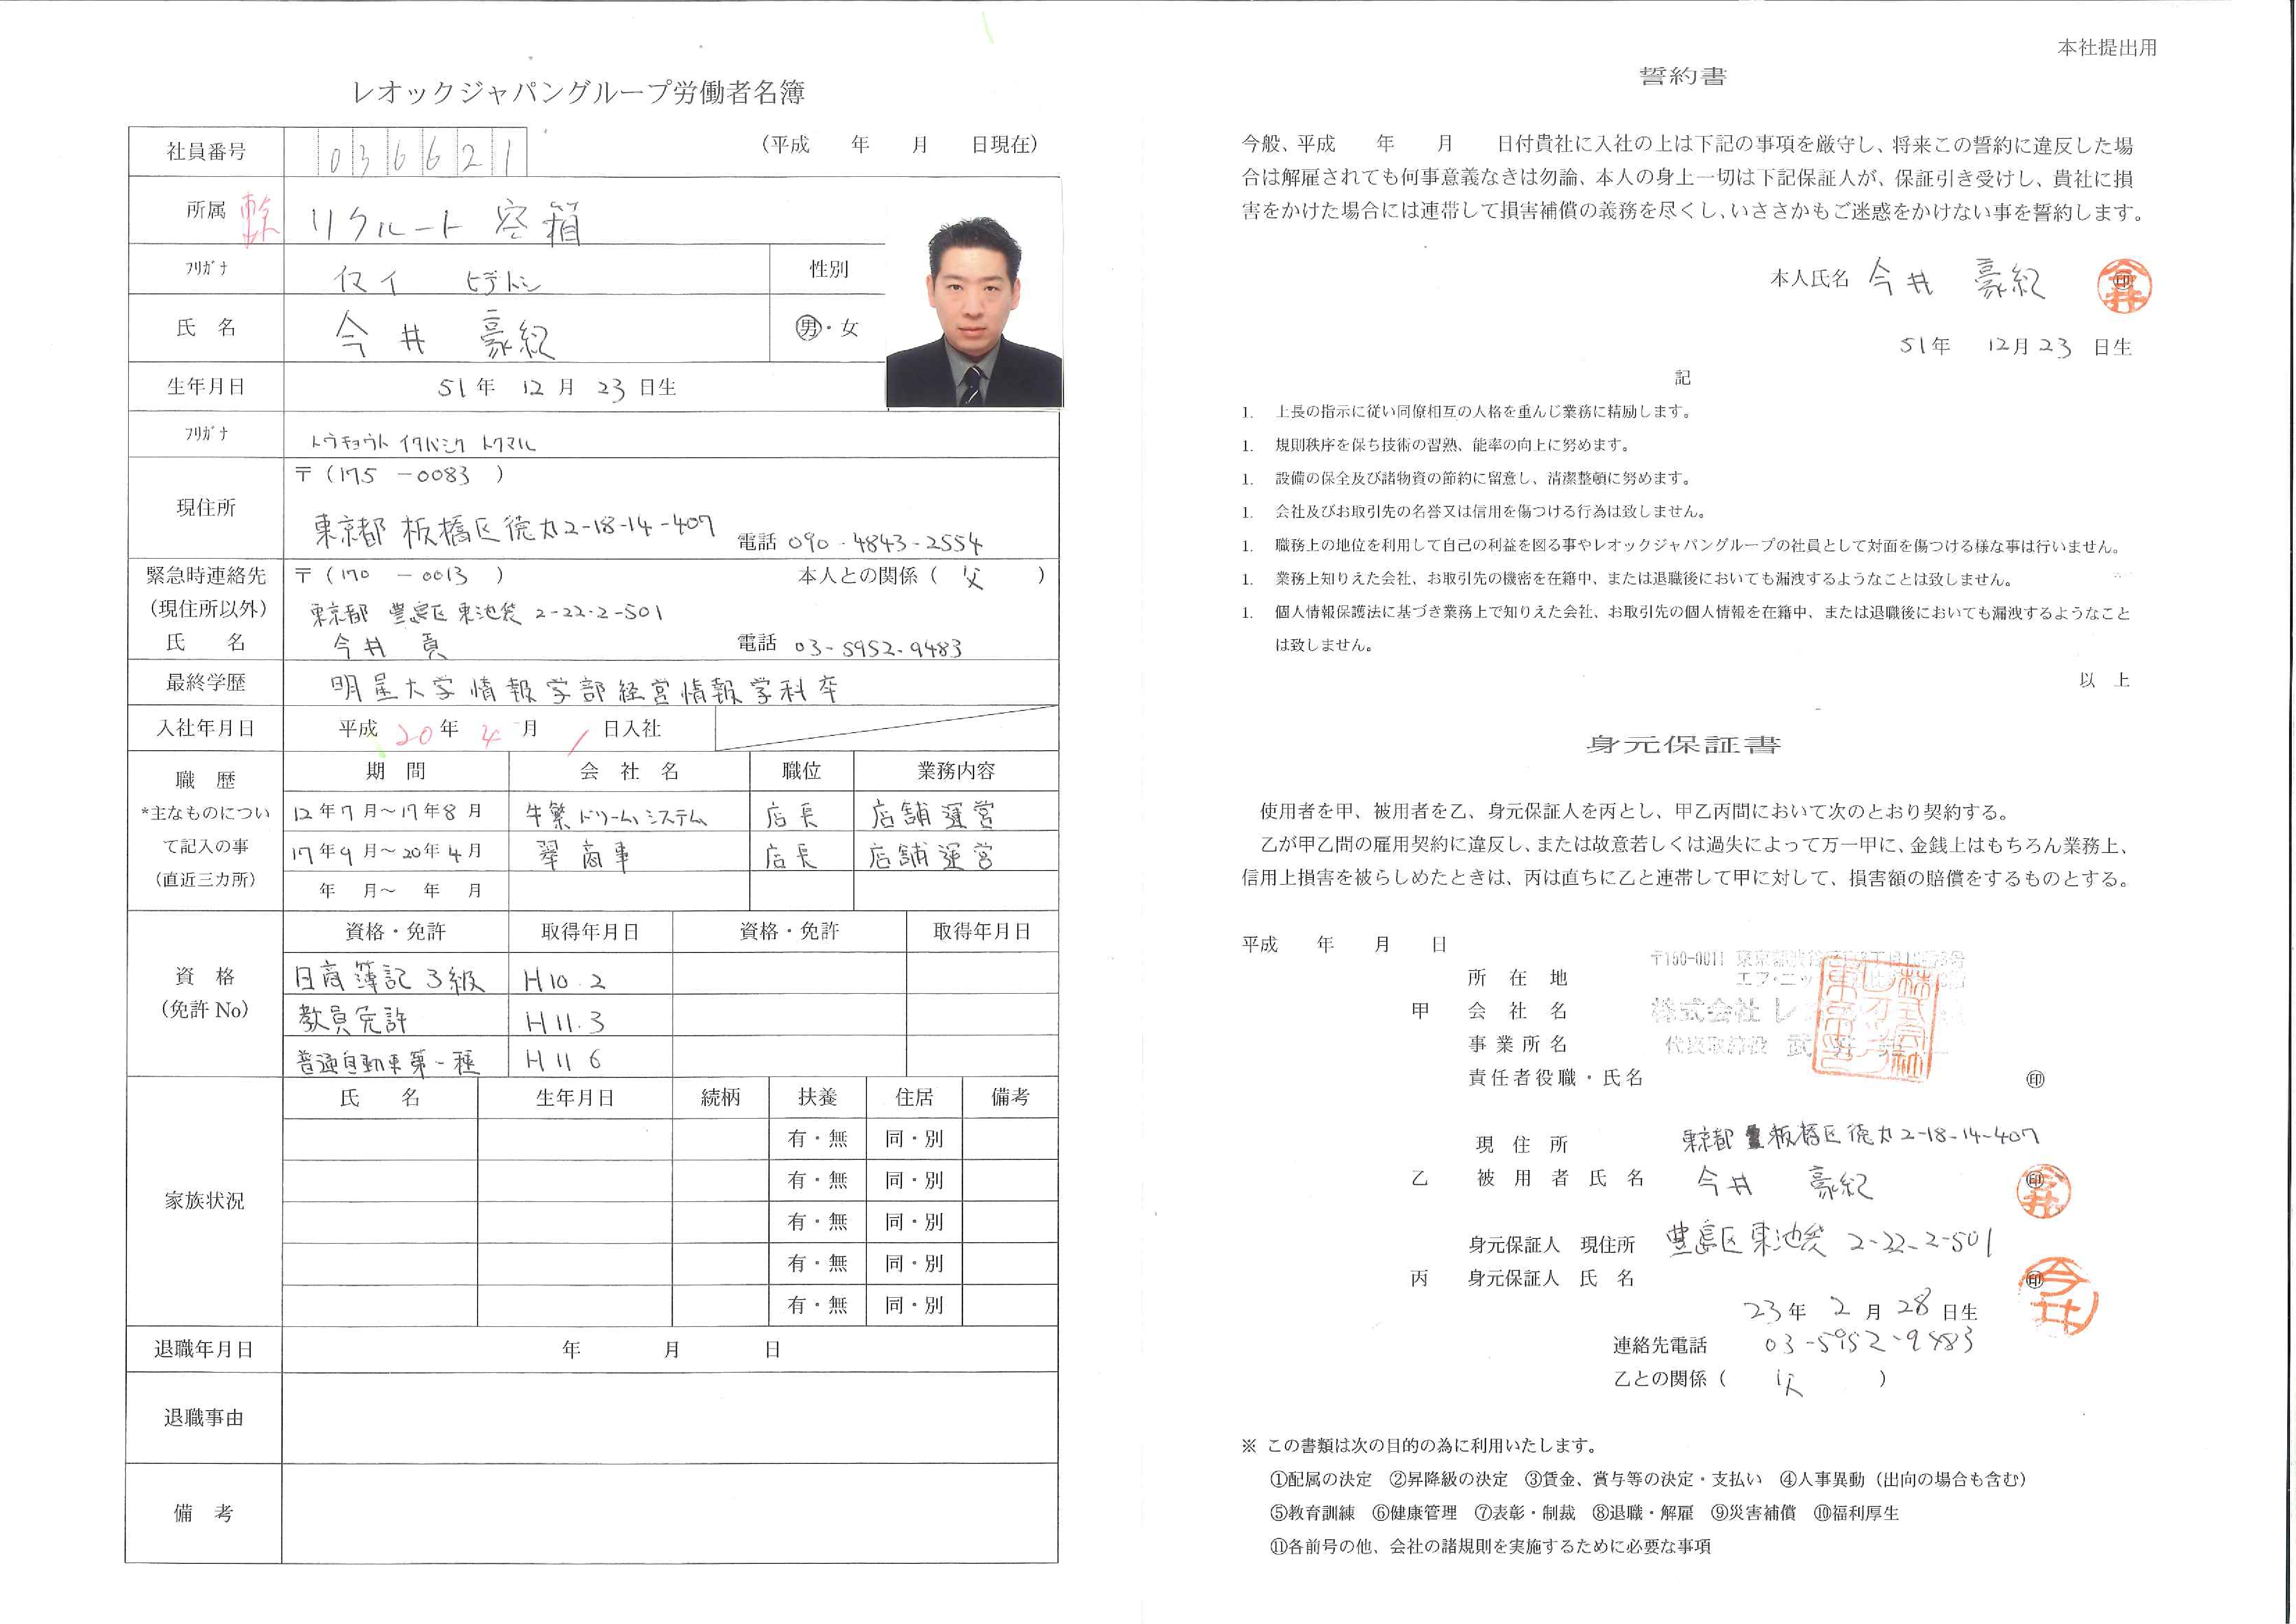 レオックジャパングループ労働者名簿
社員番号 036621 (平成 年 月 日現在)
所属 リクルート
フリガナ イマイ ヒデトシ 性別
氏 名 今井 豪紀 男・女
生年月日 51年 12月 23日生
フリガナ トウキョウト イタバシク トクマル
現住所 〒(175-0083 )
東京都 板橋区徳丸2-18-14-407 電話 090-4843-2554
緊急時連絡先 〒(170-0013 ) 本人との関係( 父 )
(現住所以外) 東京都 豊島区東池袋 2-22-2-501
氏 名 今井 電話 03-5952-9483
最終学歴 明星大学情報学部経営情報学科卒
入社年月日 平成 20年 4月 1日入社
職 歴 期 間 会 社 名 職位 業務内容
*主なものについ 12年7月~17年8月 牛繁ドリームシステム 店長 店舗運営
て記入の事 17年9月~20年4月 翠商事 店長 店舗運営
(直近三カ所) 年 月~ 年 月
資格・免許 取得年月日 資格・免許 取得年月日
資 格 日商簿記3級 H10.2
(免許 No) 教員免許 H11.3
普通自動車第一種 H11 6
家族状況 氏 名 生年月日 続柄 扶養 住居 備考
有・無 同・別
有・無 同・別
有・無 同・別
有・無 同・別
有・無 同・別
退職年月日 年 月 日
退職事由
備 考
本社提出用
誓約書
今般、平成 年 月 日付貴社に入社の上は下記の事項を厳守し、将来この誓約に違反した場
合は解雇されても何事意義なきは勿論、本人の身上一切は下記保証人が、保証引き受けし、貴社に損
害をかけた場合には連帯して損害補償の義務を尽くし、いささかもご迷惑をかけない事を誓約します。
本人氏名 今井 豪紀 ㊞
51年 12月23 日生
記
1. 上長の指示に従い同僚相互の人格を重んじ業務に精励します。
1. 規則秩序を保ち技術の習熟、能率の向上に努めます。
1. 設備の保全及び諸物資の節約に留意し、清潔整頓に努めます。
1. 会社及びお取引先の名誉又は信用を傷つける行為は致しません。
1. 職務上の地位を利用して自己の利益を図る事やレオックジャパングループの社員として対面を傷つける様な事は行いません。
1. 業務上知りえた会社、お取引先の機密を在籍中、または退職後においても漏洩するようなことは致しません。
1. 個人情報保護法に基づき業務上で知りえた会社、お取引先の個人情報を在籍中、または退職後においても漏洩するようなこと
は致しません。
以 上
身元保証書
使用者を甲、被用者を乙、身元保証人を丙とし、甲乙丙間において次のとおり契約する。
乙が甲乙間の雇用契約に違反し、または故意若しくは過失によって万一甲に、金銭上はもちろん業務上、
信用上損害を被らしめたときは、丙は直ちに乙と連帯して甲に対して、損害額の賠償をするものとする。
平成 年 月 日
〒150-0011
所 在 地 エフ・ニッ
甲 会 社 名 株式会社 レ
事業所名 代表取締役
責任者役職・氏名 ㊞
現 住 所 東京都板橋区徳丸2-18-14-407
乙 被 用 者 氏 名 今井 豪紀 ㊞
身元保証人 現住所 豊島区東池袋 2-22-2-501
丙 身元保証人 氏 名 ㊞
23年 2月 28日生
連絡先電話 03-5952-9483
乙との関係( 父 )
※ この書類は次の目的の為に利用いたします。
①配属の決定 ②昇降級の決定 ③賃金、賞与等の決定・支払い ④人事異動(出向の場合も含む)
⑤教育訓練 ⑥健康管理 ⑦表彰・制裁 ⑧退職・解雇 ⑨災害補償 ⑩福利厚生
⑪各前号の他、会社の諸規則を実施するために必要な事項